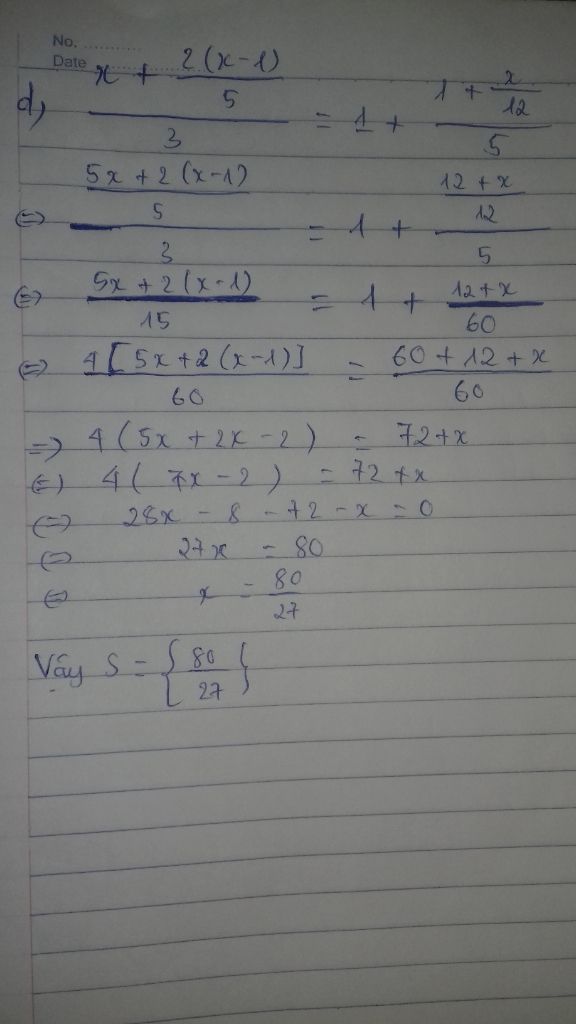 No. ............
Date ............
d, (x + (2(x-1))/5)/3 = 1 + (1 + x/12)/5
⇔ ((5x + 2(x-1))/5)/3 = 1 + ((12 + x)/12)/5
⇔ (5x + 2(x-1))/15 = 1 + (12+x)/60
⇔ (4[5x + 2(x-1)])/60 = (60 + 12 + x)/60
⇒ 4(5x + 2x - 2) = 72 + x
⇔ 4(7x - 2) = 72 + x
⇔ 28x - 8 - 72 - x = 0
⇔ 27x = 80
⇔ x = 80/27
Vậy S = {80/27}